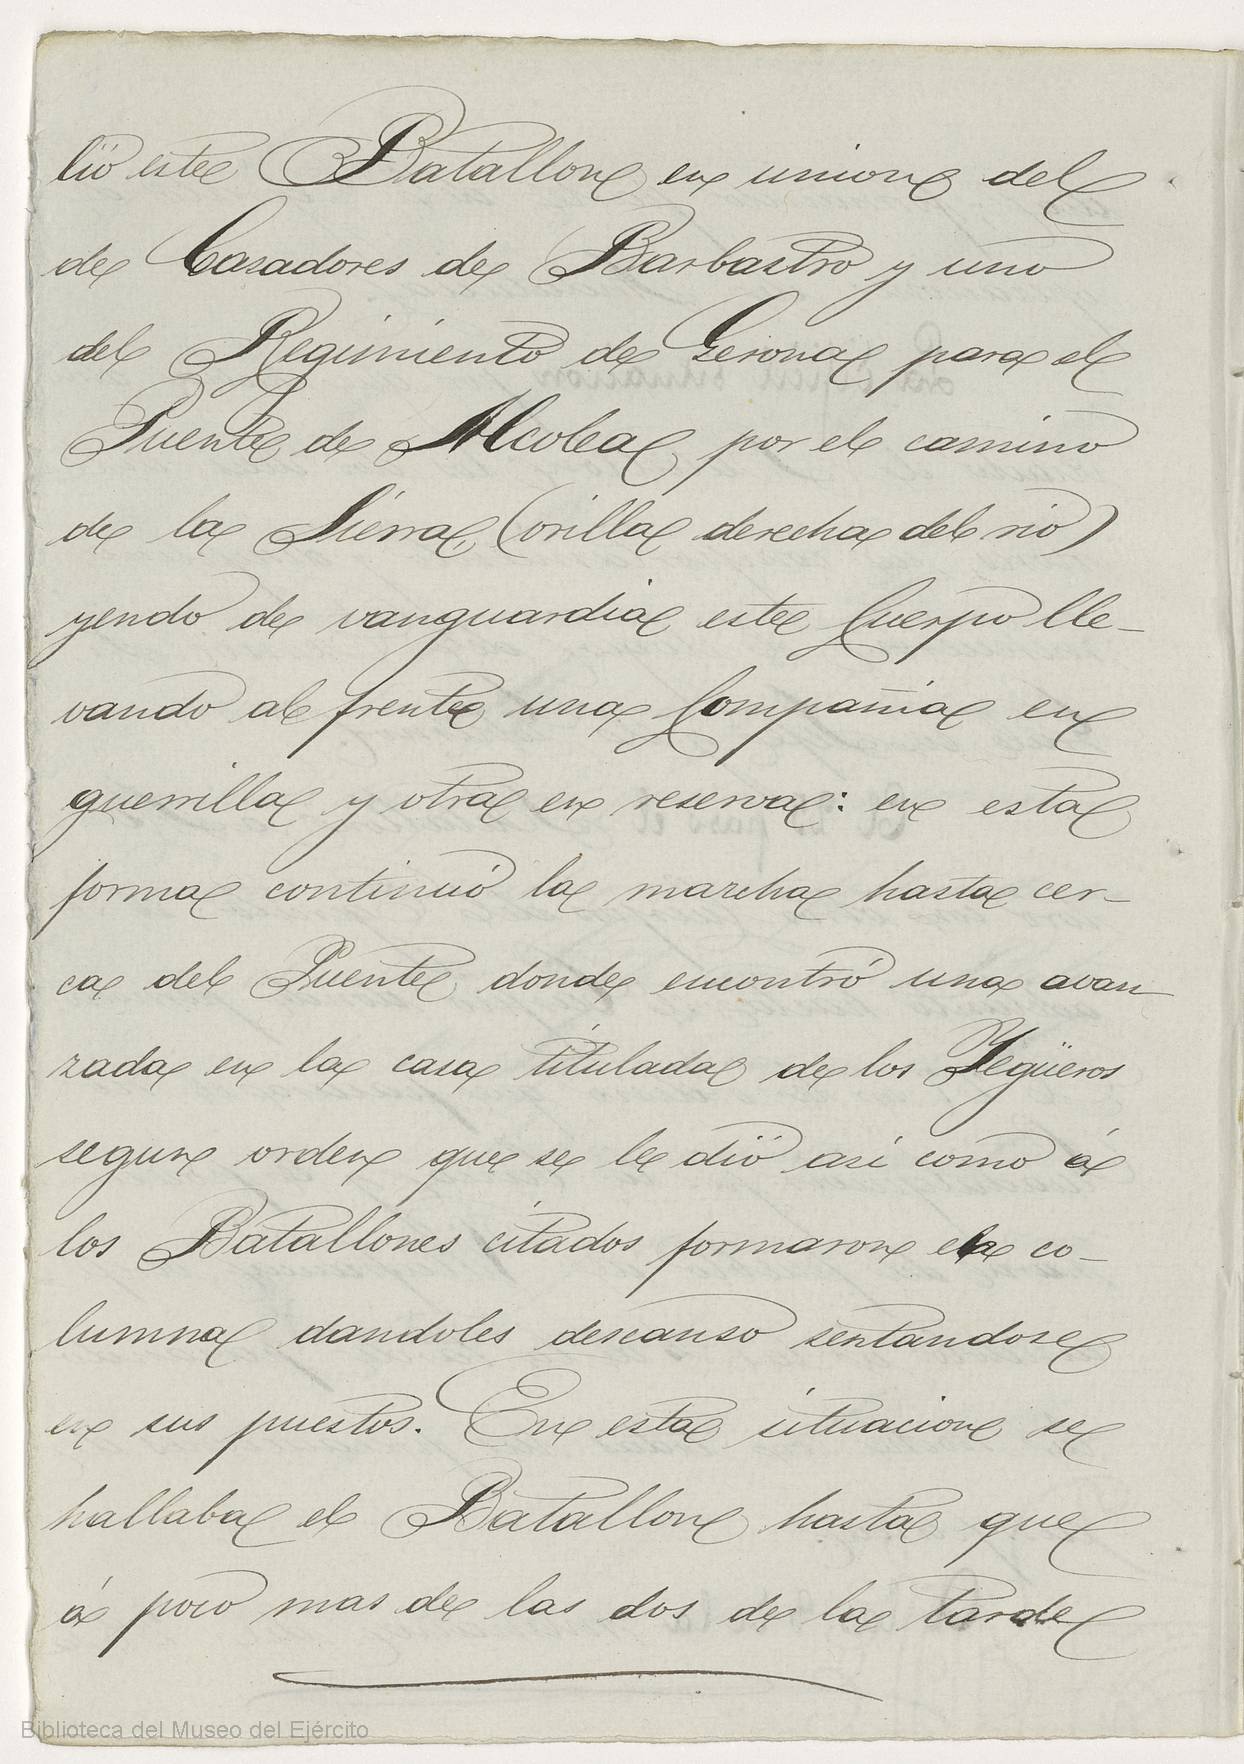 lió este Batallon en union del
de Cazadores de Barbastro y uno
del Regimiento de Gerona, para el
Puente de Alcolea, por el camino
de la Sierra, (orilla derecha del rio)
yendo de vanguardia este Cuerpo lle-
vando al frente una Compañia en
guerrilla y otra en reserva: en esta
forma continuó la marcha hasta cer-
ca del Puente donde encontró una avan-
zada en la casa titulada de los Yegüeros
segun orden que se le dió asi como á
los Batallones citados formaron en co-
lumna dandoles descanso sentandose
en sus puestos. En esta situacion se
hallaba el Batallon hasta que
á poco mas de las dos de la tarde
Biblioteca del Museo del Ejército